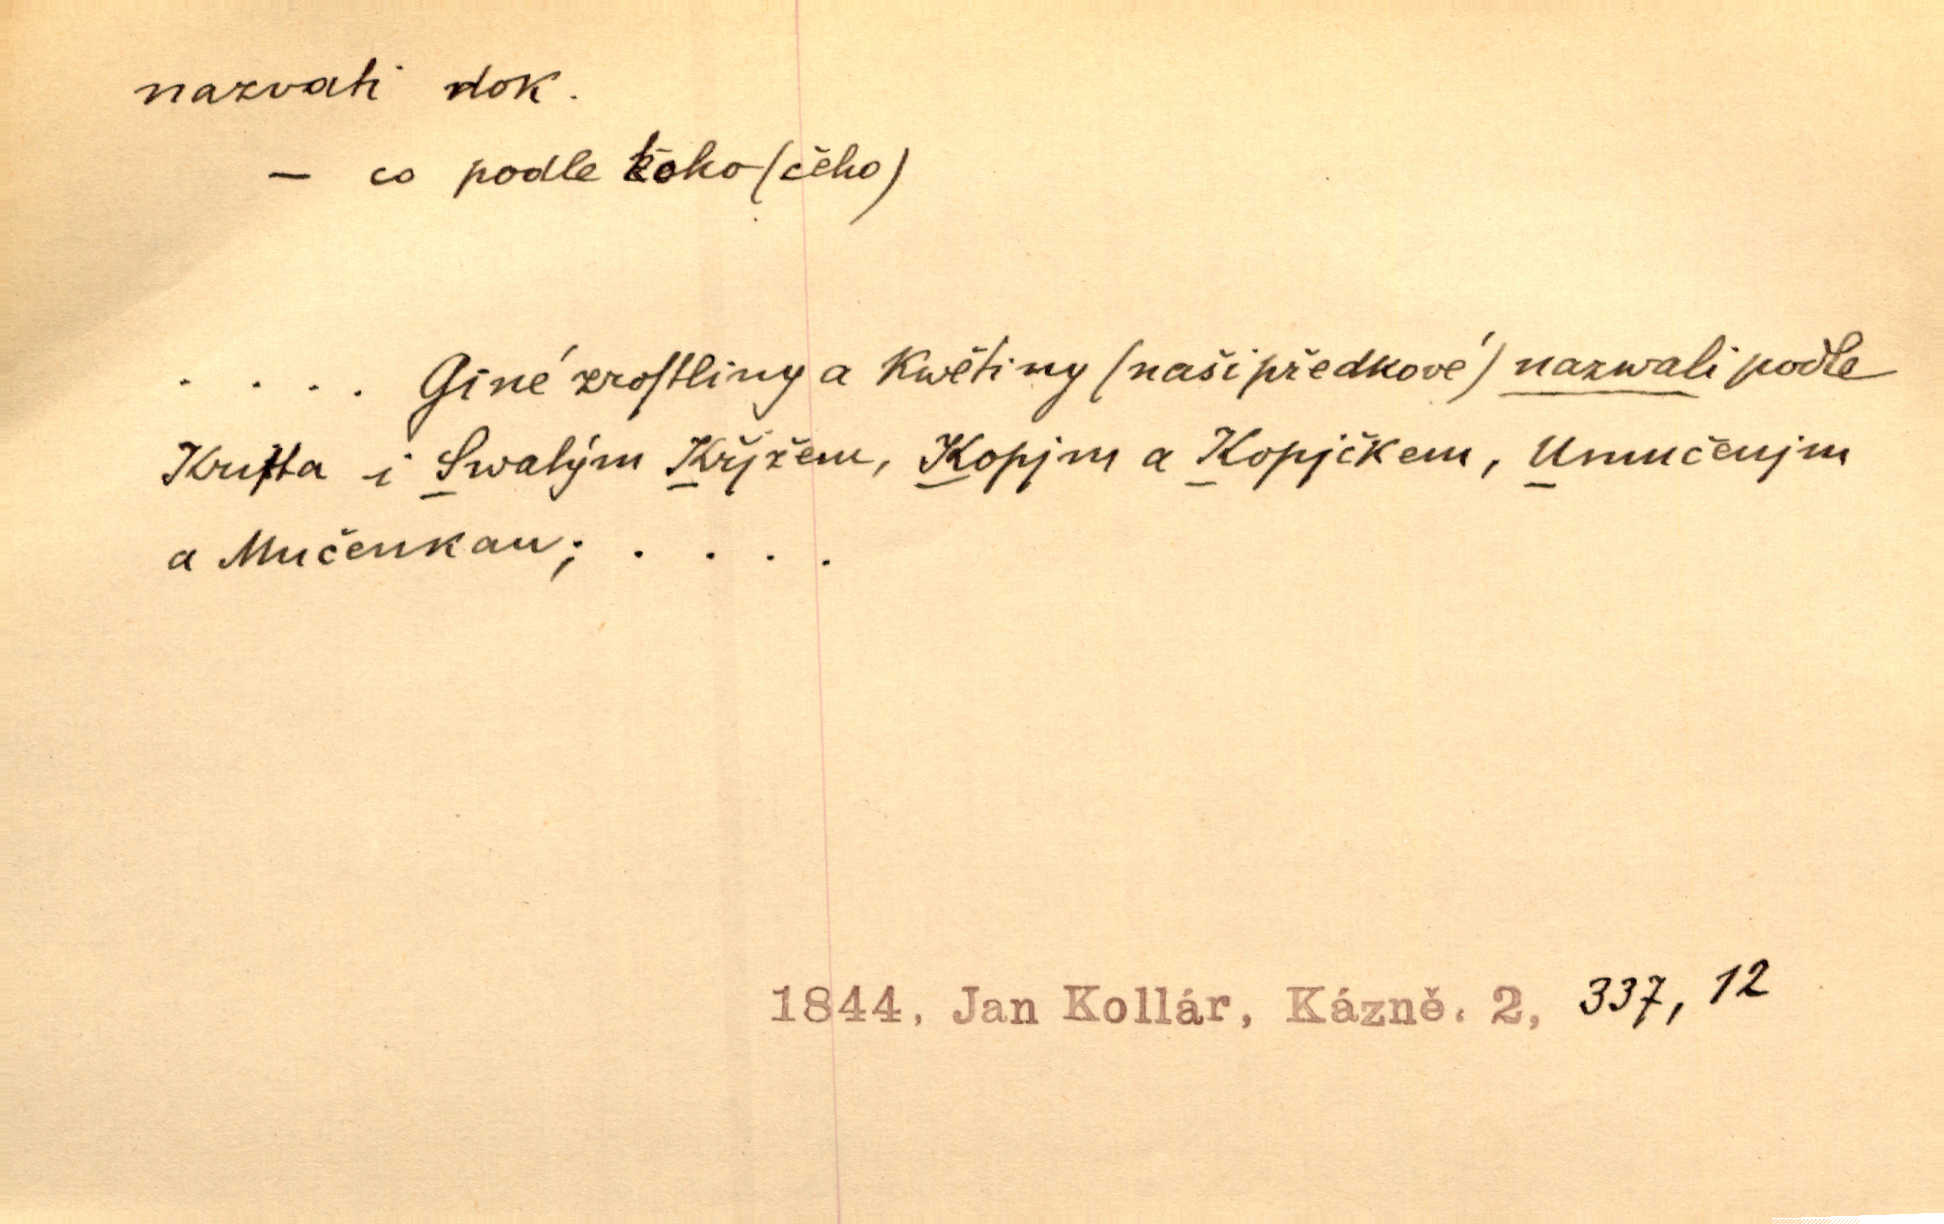 nazvati dok.
— co podle koho (čeho)
. . . . Giné zroſtliny a Kwětiny (naši předkové) nazwali podle
Kriſta i Swatým Křjžem, Kopjm a Kopjčkem, Umučenjm
a Mučenkau; . . . .
1844, Jan Kollár, Kázně. 2, 337, 12